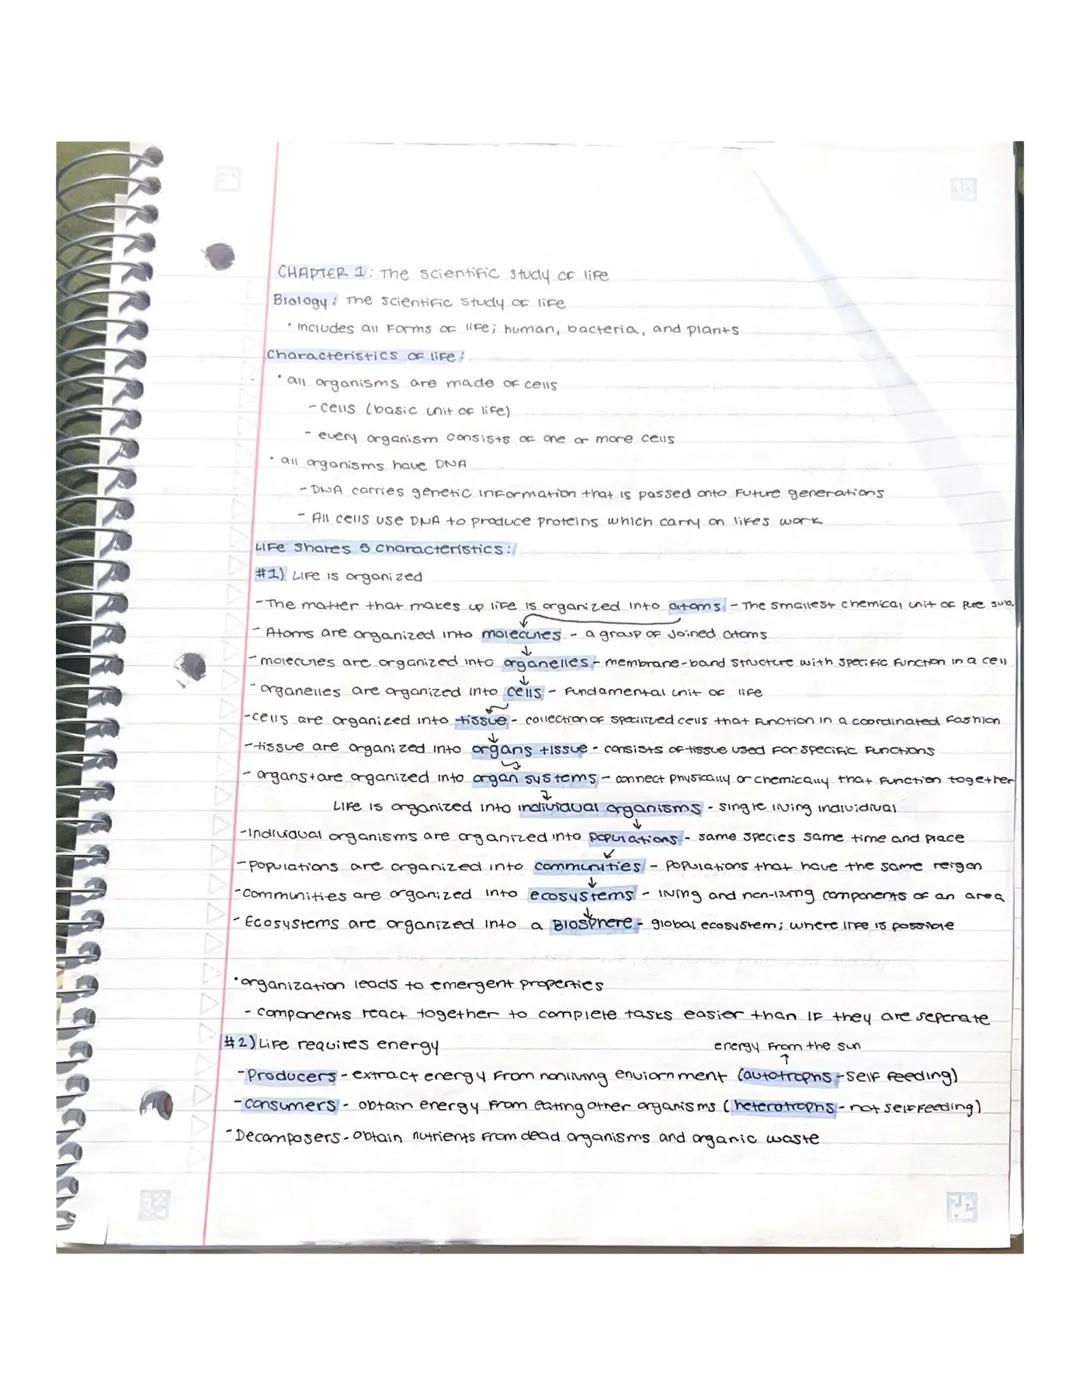 CHAPTER 1: The scientific study of life
Biology: The scientific study of life
• Includes all forms of life; human, bacteria, and plants
Characteristics of life:
• all organisms are made of cells
- cells (basic unit of life)
- every organism consists of one or more cells
• all organisms have DNA
- DNA carries genetic information that is passed onto future generations
- All cells use DNA to produce proteins which carry on lifes work
Life shares 5 characteristics:
#1) Life is organized
- The matter that makes up life is organized into atoms - The smallest chemical unit of pure sub.
- Atoms are organized into molecules - a group of joined atoms
- molecules are organized into organelles - membrane-band structure with specific function in a cell
- organelles are organized into cells - fundamental unit of life
- cells are organized into tissue - collection of specilized cells that function in a coordinated fashion
- tissue are organized into organs tissue - consists of tissue used for specific functions
- organs + are organized into organ systems - connect physically or chemically that function together
Life is organized into individual organisms - single living individual
- Individual organisms are organized into populations - same species same time and place
- populations are organized into communities - populations that have the same reigon
- communities are organized into ecosystems - living and non-living components of an area
- Ecosystems are organized into a Biosphere - global ecosystem; where life is possible
• organization leads to emergent properties
- components react together to complete tasks easier than if they are seperate
#2) Life requires energy
energy from the sun
- Producers - extract energy from nonliving enviornment (autotrophs - self feeding)
- consumers - obtain energy from eating other organisms (heterotrophs - not self feeding)
- Decomposers - obtain nutrients from dead organisms and organic waste